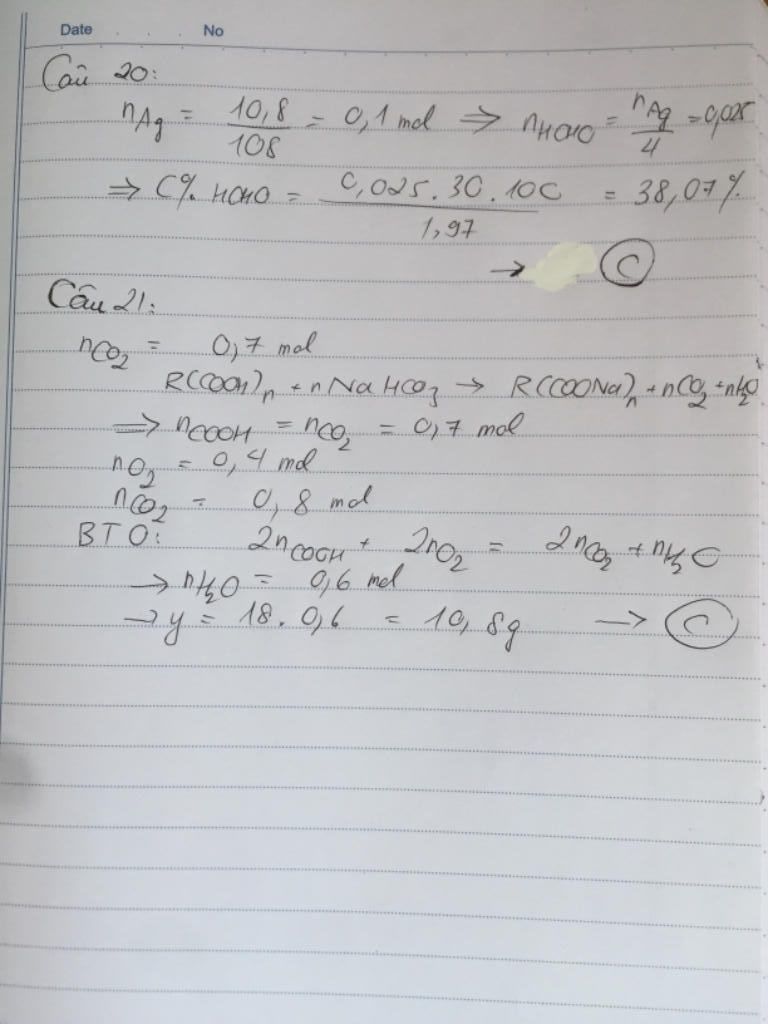 Date . . . No
Câu 20:
nAg = 10,8/108 = 0,1 mol ⇒ nHCHO = nAg/4 = 0,025
⇒ C% HCHO = 0,025.30.100/1,97 = 38,07%
→ C
Câu 21:
nCO2 = 0,7 mol
R(COOH)n + nNaHCO3 → R(COONa)n + nCO2 + nH2O
⇒ nCOOH = nCO2 = 0,7 mol
nO2 = 0,4 mol
nCO2 = 0,8 mol
BTO: 2nCOOH + 2nO2 = 2nCO2 + nH2O
→ nH2O = 0,6 mol
→ y = 18.0,6 = 10,8g → C